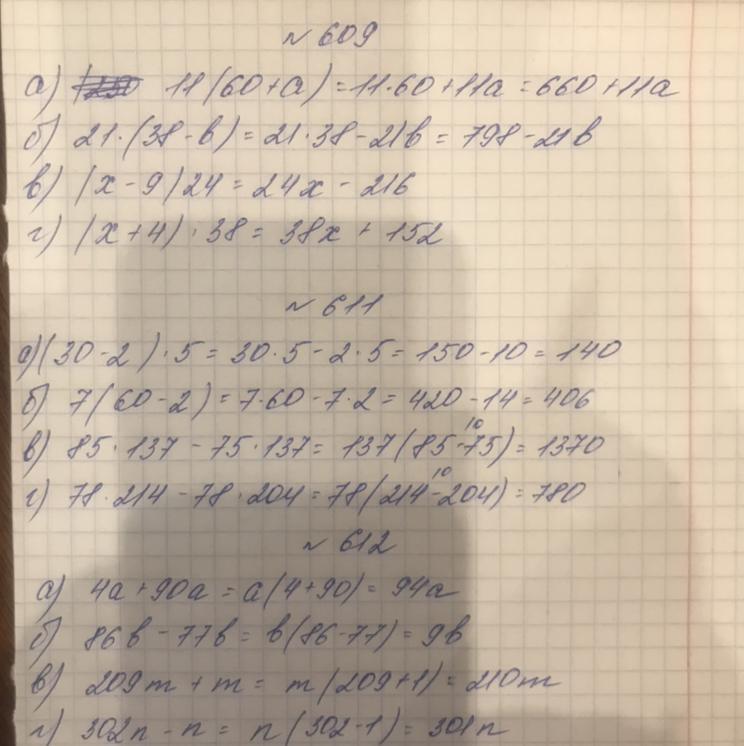 № 609
а) 11(60+а) = 11·60+11а = 660+11а
б) 21·(38-в) = 21·38-21в = 798-21в
в) (х-9)24 = 24х - 216
г) (х+4)·38 = 38х + 152
№ 611
а) (30-2)·5 = 30·5-2·5 = 150-10 = 140
б) 7(60-2) = 7·60-7·2 = 420-14 = 406
10
в) 85·137 - 75·137 = 137(85-75) = 1370
10
г) 78·214 - 78·204 = 78(214-204) = 780
№ 612
а) 4а+90а = а(4+90) = 94а
б) 86в - 77в = в(86-77) = 9в
в) 209m + m = m(209+1) = 210m
г) 302n - n = n(302-1) = 301n